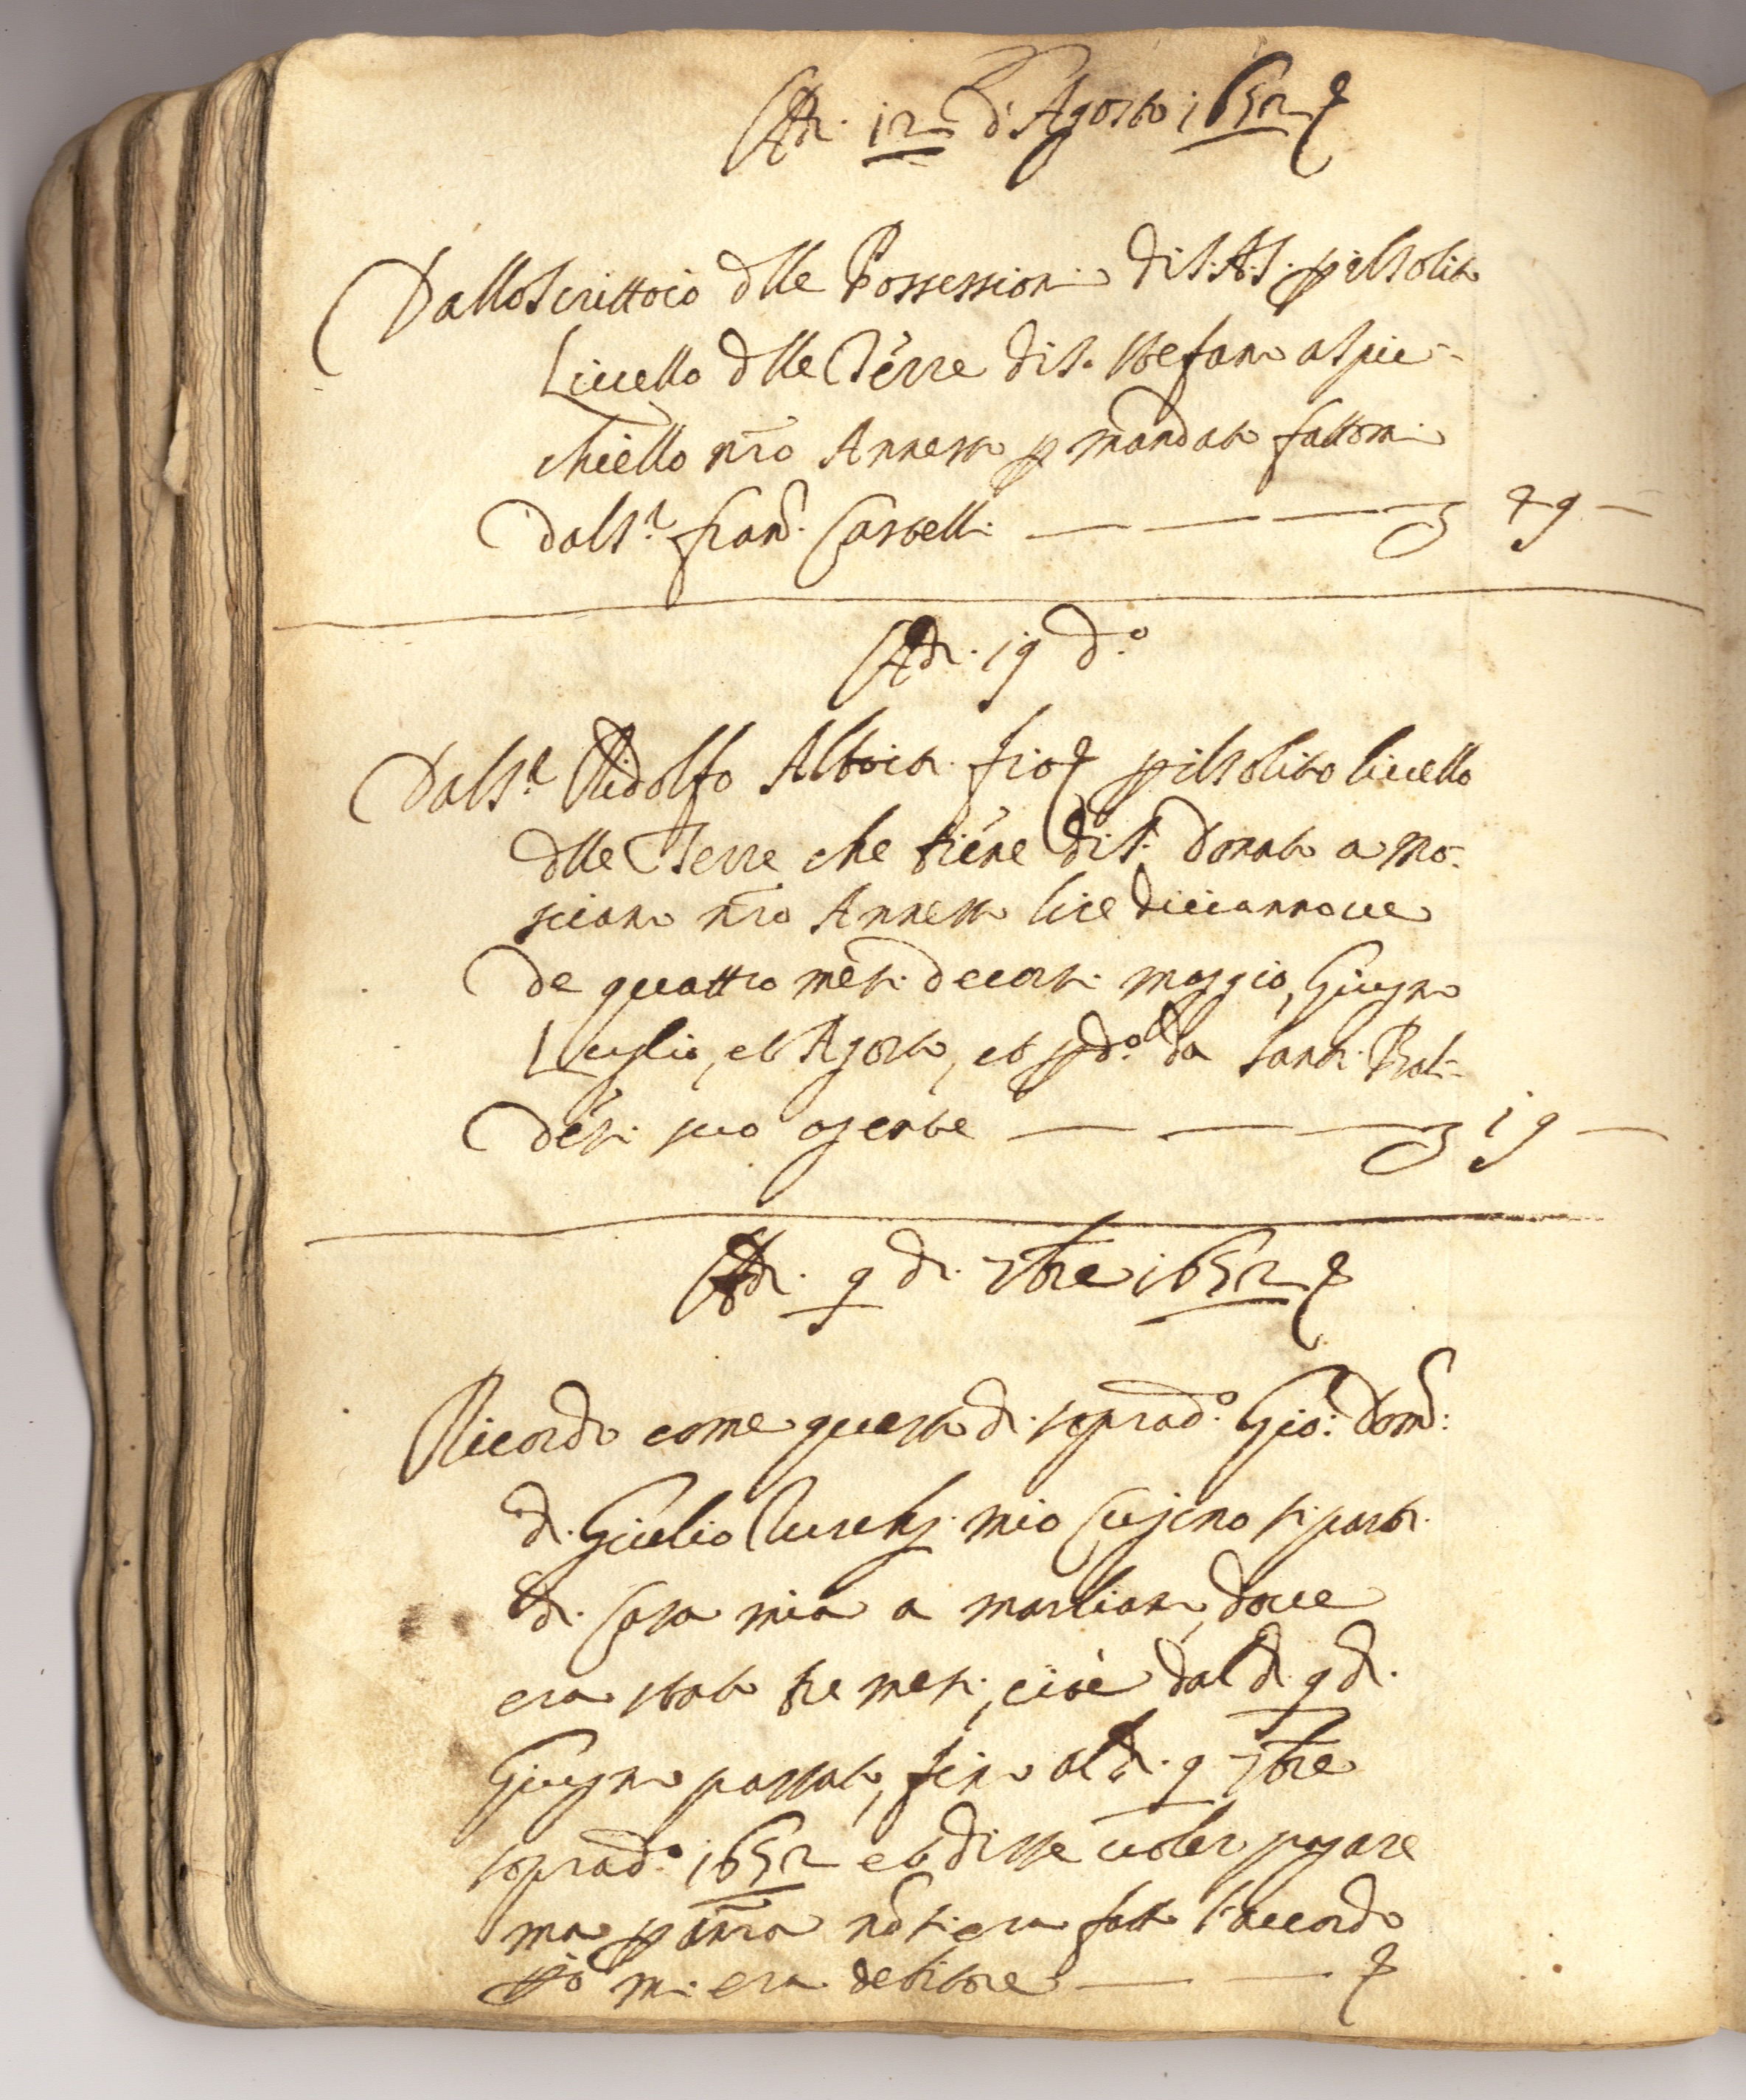 Adi. 12 di Agosto 1652
Dallo Scrittoio dlle Possessioni di S.A.S. p il solito
Livello dlle Terre di S. Stefano a Spic-
chiello nro Annesso p mandato fattomi
dal Sr. Franc. Castelli — — — 49 —
Adi. 19 do.
Dal Sr. Ridolfo Alboit. p il solito livello
dlle Terre che tiene di S. Donato a Mo-
sciano nro Annesso lire diciannove
de quattro mesi decorsi Maggio, Giugno
Luglio, et Agosto, et p do. da Santi
suo agente — — — 19 —
Adi. 9 di 7bre 1652
Ricordo come questo di soprado. Gio: Dom:
di Giulio mio Cugino si partì
di Casa mia a Marliano, dove
era stato tre mesi, cioè dal di 9 di
Giugno passato, fino al di 9 7bre
soprado. 1652 et disse voler pagare
ma p ancora nō si era fatto l'accordo
mi era debitore — —